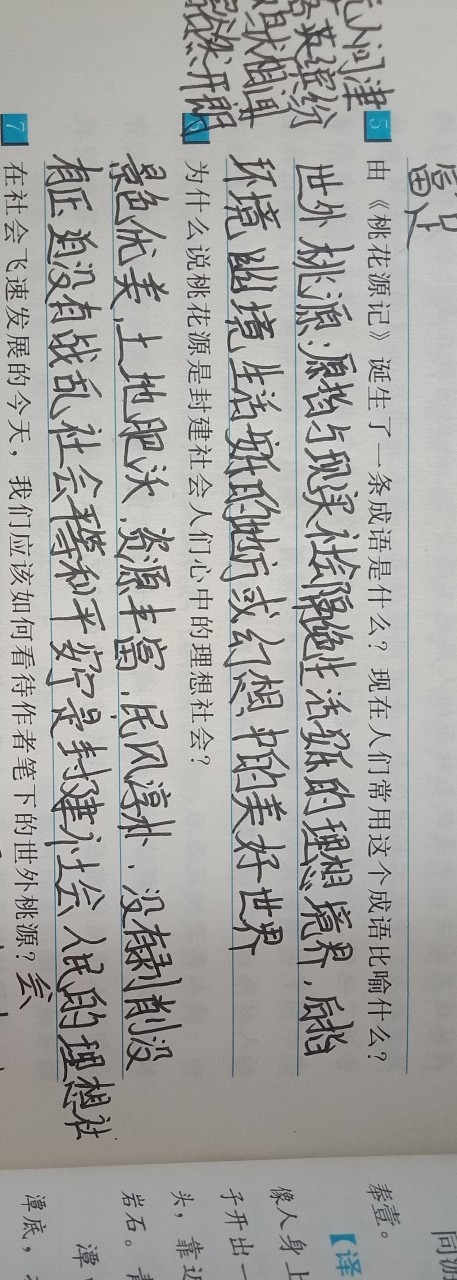 无人问津
落英缤纷
豁然开朗
5 由《桃花源记》诞生了一条成语是什么?现在人们常用这个成语比喻什么?
世外桃源:原指与现实社会隔绝生活安乐的理想境界,后指
环境幽境生活安乐的地方或幻想中的美好世界
6 为什么说桃花源是封建社会人们心中的理想社会?
景色优美,土地肥沃,资源丰富,民风淳朴,没有剥削没
有压迫没有战乱社会平等和平安宁是封建社会人民的理想社
会
7 在社会飞速发展的今天,我们应该如何看待作者笔下的世外桃源?
奉壹。
【译
像人身上
子开出一
头,靠近
岩石。
潭
潭底,